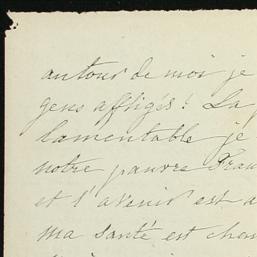 autour de moi je
gens affligés! La
lamentable je
notre pauvre
et l'avenir est
ma santé est